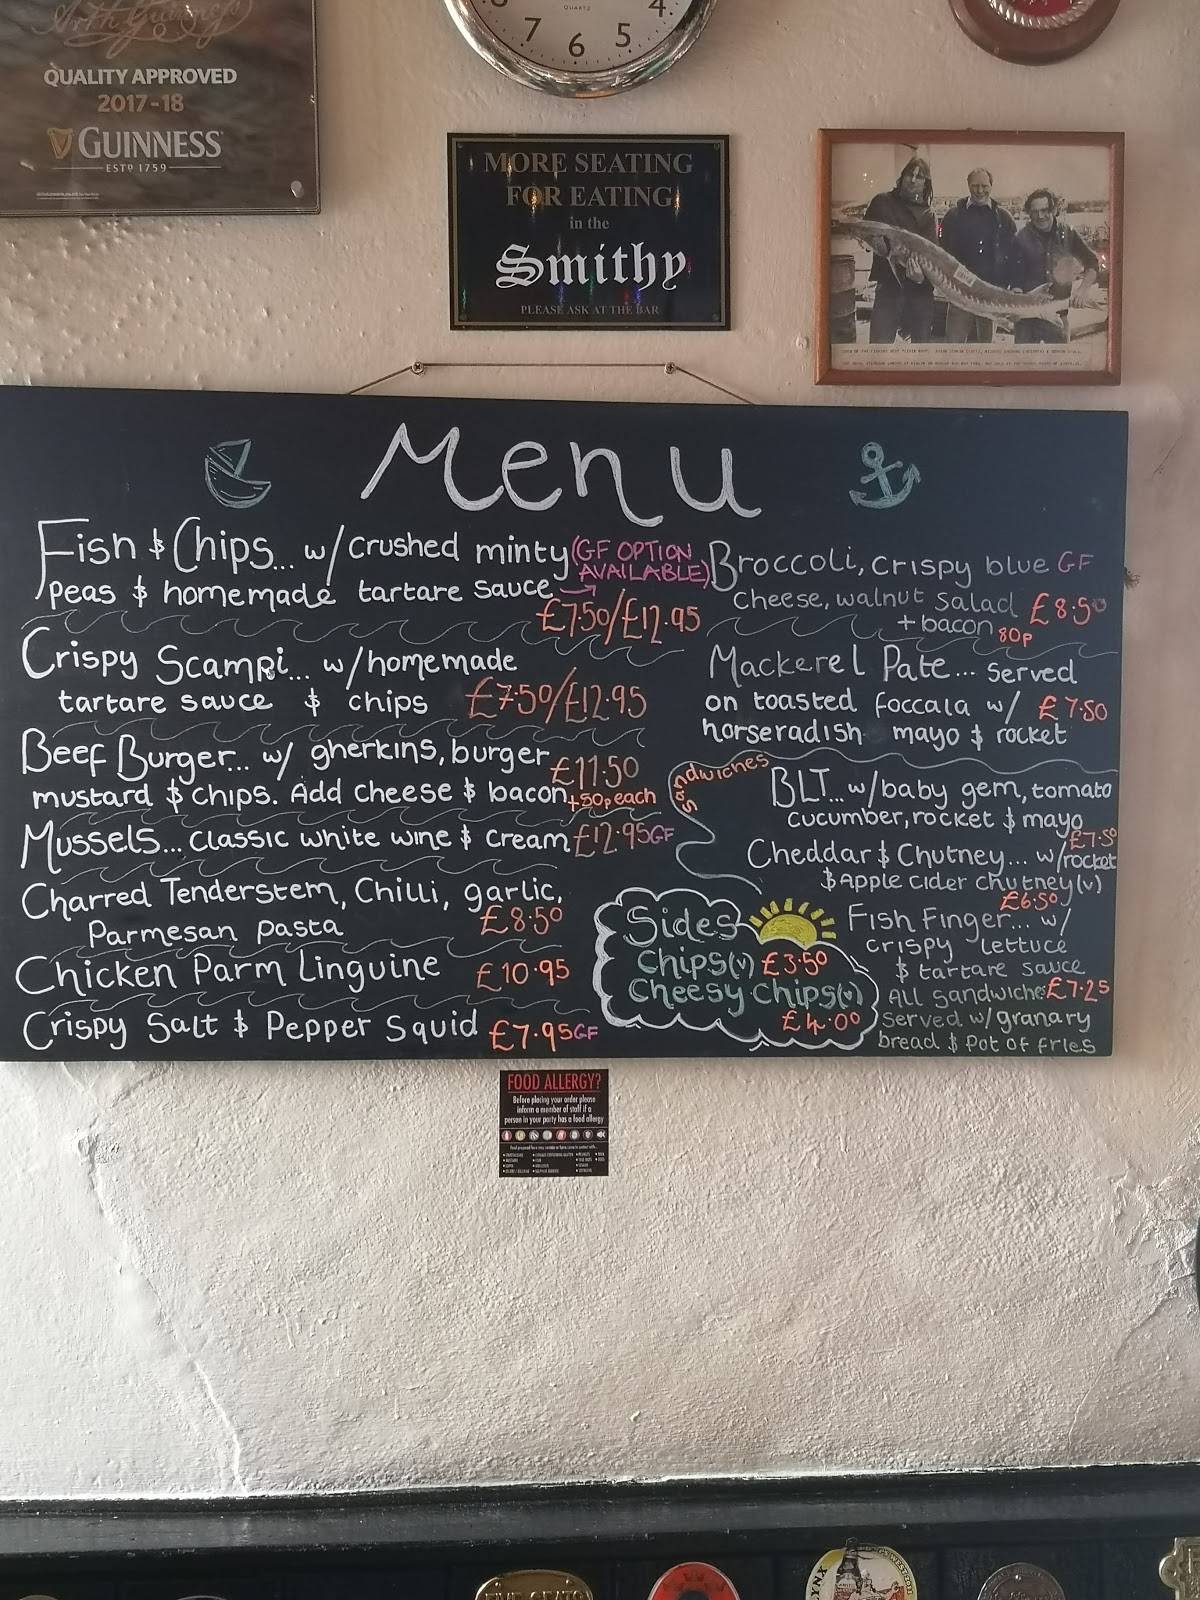 QUALITY APPROVED
2017-18
GUINNESS
ESTD 1759
7 6 5 4
QUARTZ
MORE SEATING
FOR EATING
in the
Smithy
PLEASE ASK AT THE BAR
Menu
Fish & Chips... w/ crushed minty (GF OPTION
peas & homemade tartare sauce AVAILABLE)
£7.50/£12.95
Crispy Scampi... w/homemade
tartare sauce & chips £7.50/£12.95
Beef Burger... w/ gherkins, burger
mustard & chips. Add cheese & bacon £11.50
+50p each
Mussels... classic white wine & cream £12.95 GF
Charred Tenderstem, Chilli, garlic,
Parmesan pasta £8.50
Chicken Parm Linguine £10.95
Crispy Salt & Pepper Squid £7.95 GF
Broccoli, crispy blue GF
cheese, walnut salad £8.50
+ bacon 80p
Mackerel Pate... served
on toasted foccaia w/ £7.50
horseradish mayo & rocket
Sandwiches
BLT... w/baby gem, tomato
cucumber, rocket & mayo
£7.50
Cheddar & Chutney... w/rocket
& Apple cider chutney (v)
£6.50
Fish Finger... w/
crispy lettuce
& tartare sauce
£7.25
All sandwiches
served w/ granary
bread & pot of fries
Sides
Chips (v) £3.50
Cheesy Chips (v)
£4.00
FOOD ALLERGY?
Before placing your order please
inform a member of staff if a
person in your party has a food allergy